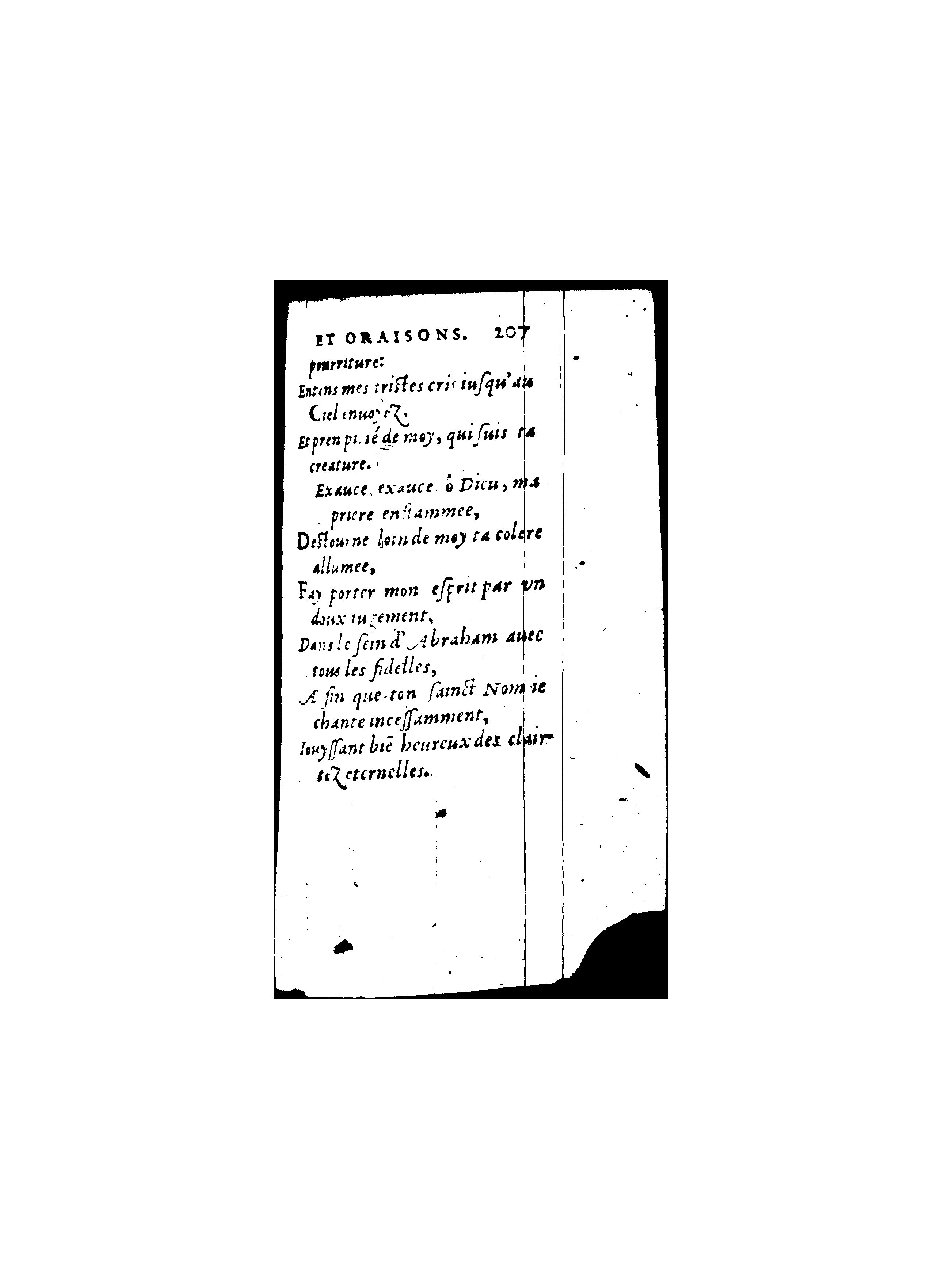 ET ORAISONS. 207
pourriture:
Entens mes tristes cris iusqu'au
Ciel enuoyeZ.
Et pren pitié de moy, qui suis ta
creature.
Exauce, exauce ô Dieu, ma
priere enflammee,
Destourne loin de moy ta colere
allumee,
Fay porter mon esprit par vn
doux iugement,
Dans le sein d'Abraham auec
tous les fidelles,
A fin que ton sainct Nom ie
chante incessamment,
Iouyssant biē heureux des clair-
teZ eternelles.